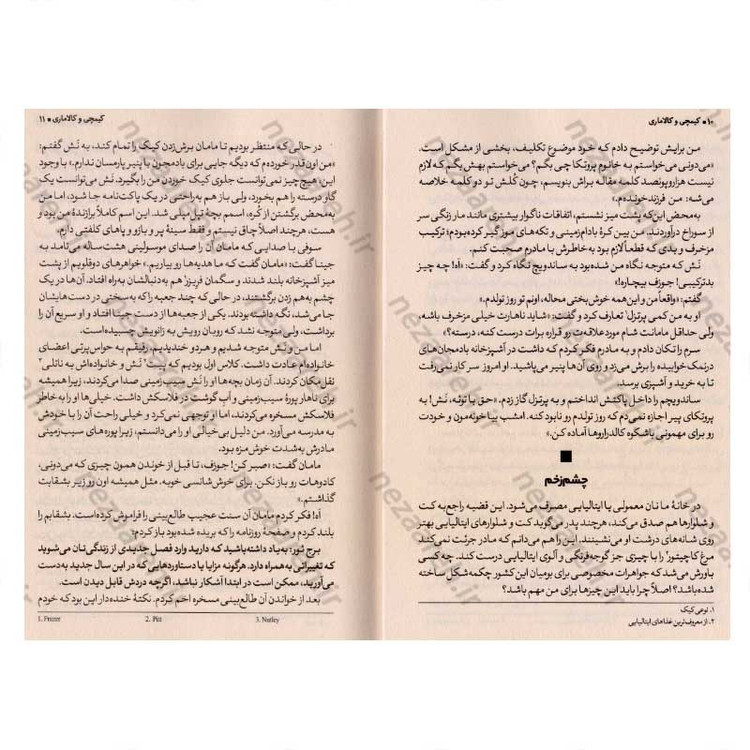 ۱۰ • کیمچی و کالاماری
من برایش توضیح دادم که خود موضوع تکلیف، بخشی از مشکل است.
«می‌دونی می‌خواستم به خانوم پروتکا چی بگم؟ می‌خواستم بهش بگم که لازم
نیست هزاروپونصد کلمه مقاله براش بنویسم، چون کُلش تو دو کلمه خلاصه
می‌شه: من فرزندخونده‌م.»
به‌محض این‌که پشت میز نشستم، اتفاقات ناگوار بیشتری مانند مار زنگی سر
از سوراخ درآوردند. من بین کرهٔ بادام‌زمینی و تکه‌های موز گیر کرده بودم؛ ترکیب
مزخرف و بدی که قطعاً لازم بود به‌خاطرش با مادرم صحبت کنم.
نَش که متوجه نگاه من شده بود به ساندویچ نگاه کرد و گفت: «اَه! چه چیز
بدترکیبی! جوزف بیچاره!»
گفتم: «واقعاً من و این‌همه خوش‌بختی محاله، اونم تو روز تولدم.»
او به من کمی پرتزل۱ تعارف کرد و گفت: «شاید ناهارت خیلی مزخرف باشه؛
ولی حداقل مامانت شام موردعلاقه‌ت رو قراره برات درست کنه، درسته؟»
سرم را تکان دادم و به مادرم فکر کردم که داشت در آشپزخانه بادمجان‌های
درنمک خوابیده را برش می‌زد و روی آن‌ها پنیر می‌پاشید. او امروز سر کار نمی‌رفت
تا به خرید و آشپزی برسد.
ساندویچم را داخل پاکتش انداختم و به پرتزل گاز زدم. «حق با توئه، نَش! به
پروتکای پیر اجازه نمی‌دم که روز تولدم رو نابود کنه. امشب بیا خونه‌مون و خودت
رو برای مهمونی باشکوه کالدراروها آماده کن.»
■
چشم‌زخم
در خانهٔ ما نان معمولی یا ایتالیایی مصرف می‌شود. این قضیه راجع‌به کت
و شلوارها هم صدق می‌کند، هرچند پدر می‌گوید کت و شلوارهای ایتالیایی بهتر
روی شانه‌های درشت او می‌نشینند. این را هم می‌دانم که مادر جرئت نمی‌کند
مرغ کاچیتور۲ را با چیزی جز گوجه‌فرنگی و آلوی ایتالیایی درست کند. چه کسی
باورش می‌شد که جواهرات مخصوصی برای بومیان این کشور چکمه‌شکل ساخته
شده‌باشد؟ اصلاً چرا باید این چیزها برای من مهم باشد؟
۱. نوعی کیک
۲. از معروف‌ترین غذاهای ایتالیایی
کیمچی و کالاماری • ۱۱
در حالی که منتظر بودیم تا مامان برش‌زدن کیک را تمام کند، به نَش گفتم:
«من اون‌قدر خورده‌م که دیگه جایی برای بادمجون با پنیر پارمسان ندارم.» با وجود
این، هیچ چیز نمی‌توانست جلوی کیک خوردن من را بگیرد. نَش می‌توانست یک
گاو درسته را هم بخورد، ولی باز هم به‌راحتی در یک پاکت‌نامه جا شود، اما من
به‌محض برگشتن از کُره، اسمم بچهٔ تپل میلی شد. این اسم کاملاً برازندهٔ من بود و
هست، هرچند اصلاً چاق نیستم و فقط سینهٔ پر و بازو و پاهای کلفتی دارم.
سوفی با صدایی که مامان آن را صدای موسولینی هشت‌ساله می‌نامد به
جینا گفت: «مامان گفت که ما هدیه‌ها رو بیاریم.» خواهرهای دوقلویم از پشت
میز آشپزخانه بلند شدند و سگمان فریزر۱ هم به‌دنبالشان به‌راه افتاد. آن‌ها در یک
چشم به‌هم زدن برگشتند، در حالی که چند جعبه را که به سختی در دست‌هایشان
جا می‌شد، نگه داشته بودند. یکی از جعبه‌ها از دست جینا افتاد و او سریع آن را
برداشت، ولی متوجه نشد که روبان رویش به زانویش چسبیده است.
اما من و نَش متوجه شدیم و هر دو خندیدیم. رفیقم به حواس‌پرتی اعضای
خانواده‌ام عادت داشت. کلاس اول بودیم که پیت۲ نَش و خانواده‌اش به ناتلی۳
نقل‌مکان کردند. آن زمان بچه‌ها او را نَش سیب‌زمینی صدا می‌کردند، زیرا همیشه
برای ناهار پورهٔ سیب‌زمینی و آب گوشت در فلاسکش داشت. خیلی‌ها او را به‌خاطر
فلاسکش مسخره می‌کردند، اما او توجهی نمی‌کرد و خیلی راحت آن را با خودش
به مدرسه می‌آورد. من دلیل بی‌خیالی او را می‌دانستم، زیرا پوره‌های سیب‌زمینی
مادرش به‌شدت خوش‌مزه بود.
مامان گفت: «صبر کن! جوزف، تا قبل از خوندن همون چیزی که می‌دونی،
کادوهات رو باز نکن. برای خوش‌شانسی خوبه. مثل همیشه اون رو زیر بشقابت
گذاشتم.»
آه! فکر کردم مامان آن سنت عجیب طالع‌بینی را فراموش کرده‌است. بشقابم را
بلند کردم و صفحهٔ روزنامه را که بریده شده‌بود باز کردم:
برج ثور: به‌یاد داشته‌باشید که دارید وارد فصل جدیدی از زندگی‌تان می‌شوید
که تغییراتی به‌همراه دارد. هرگونه مزایا یا دستاوردهایی که در این سال جدید به‌دست
می‌آورید، ممکن است در ابتدا آشکار نباشد، اگرچه در دش قابل دیدن است.
بعد از خواندن آن طالع‌بینی مسخره اخم کردم. نکتهٔ خنده‌دار این بود که خودم
1. Frezer 2. Pitt 3. Nutley
nezameh.ir